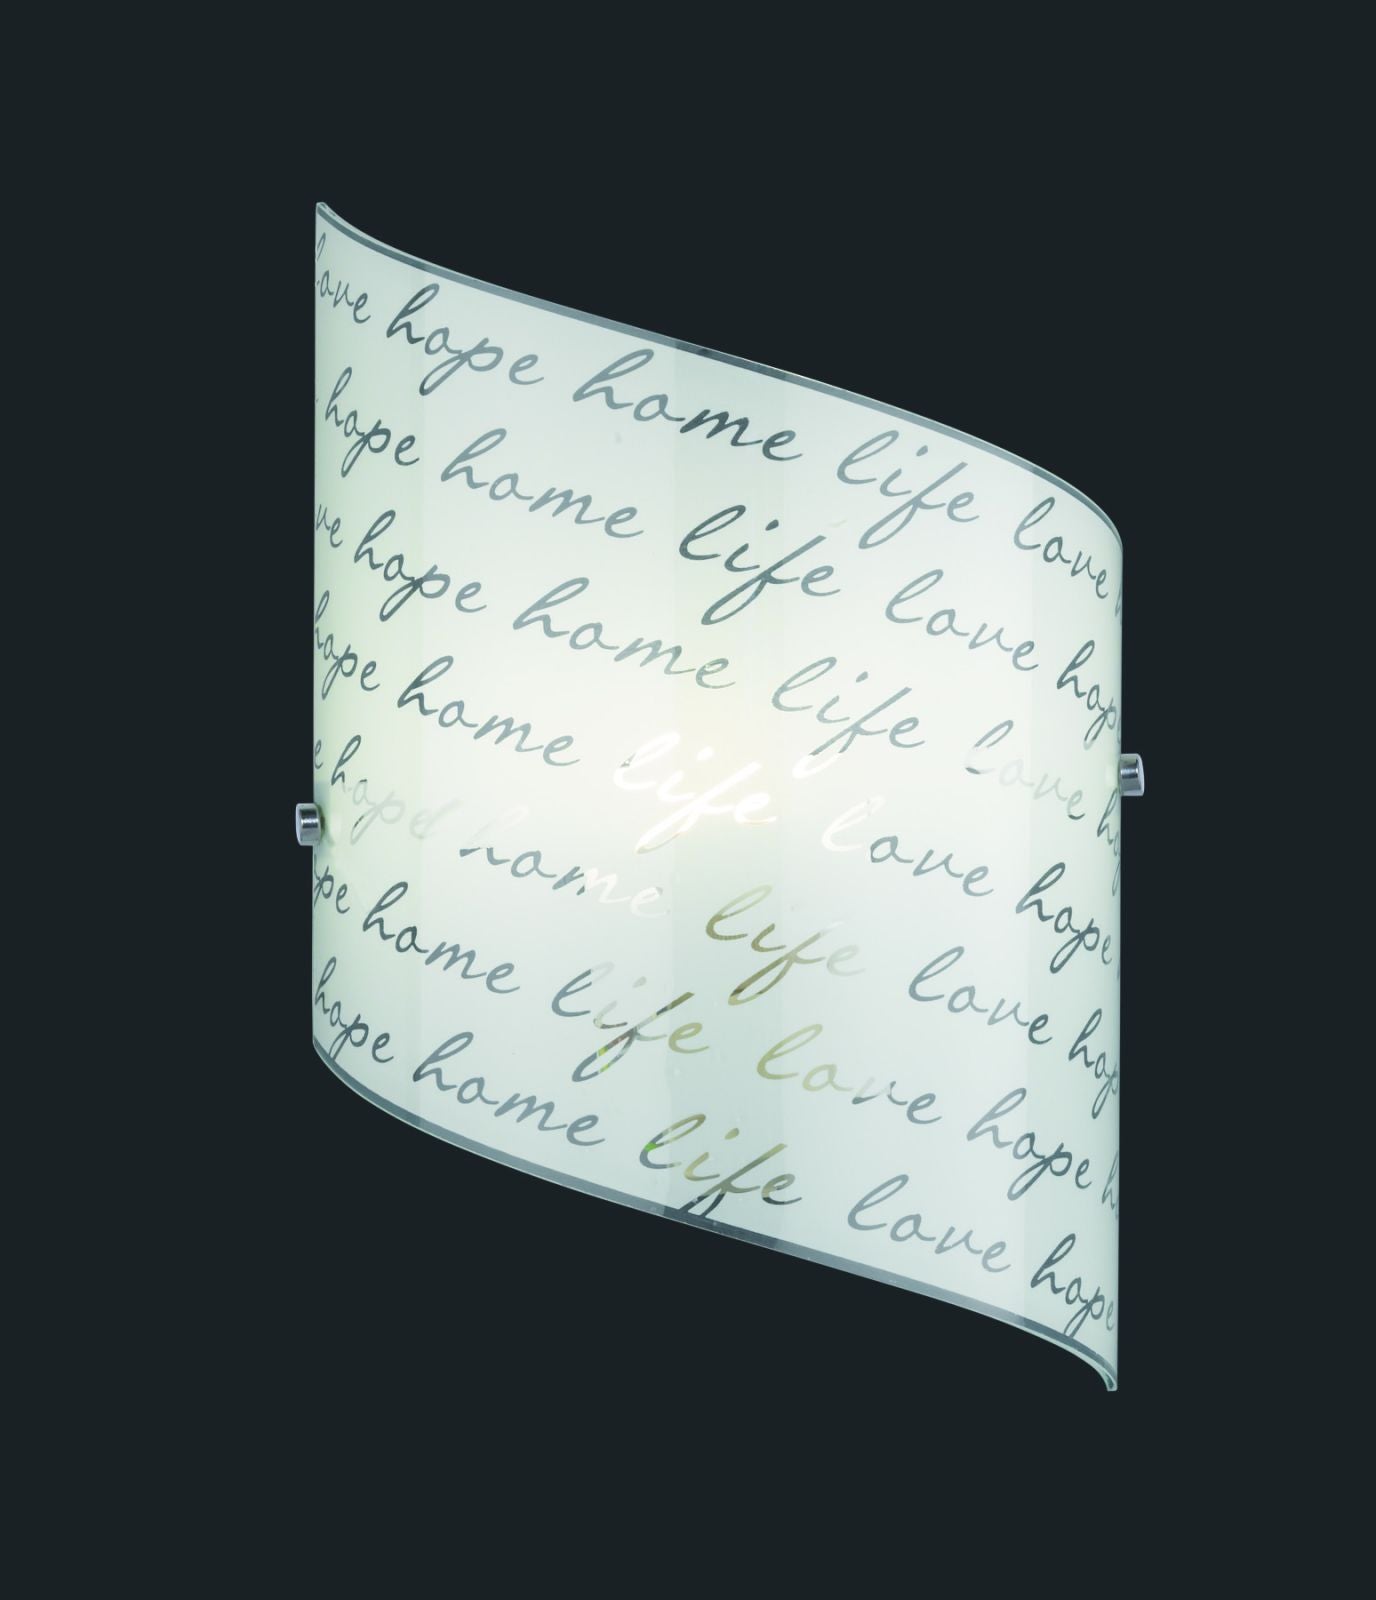 love hope home life love
hope home life love hope
ve hope home life love ho
hope home life love hope
e hope home life love hop
pe home life love hope h
hope home life love hope